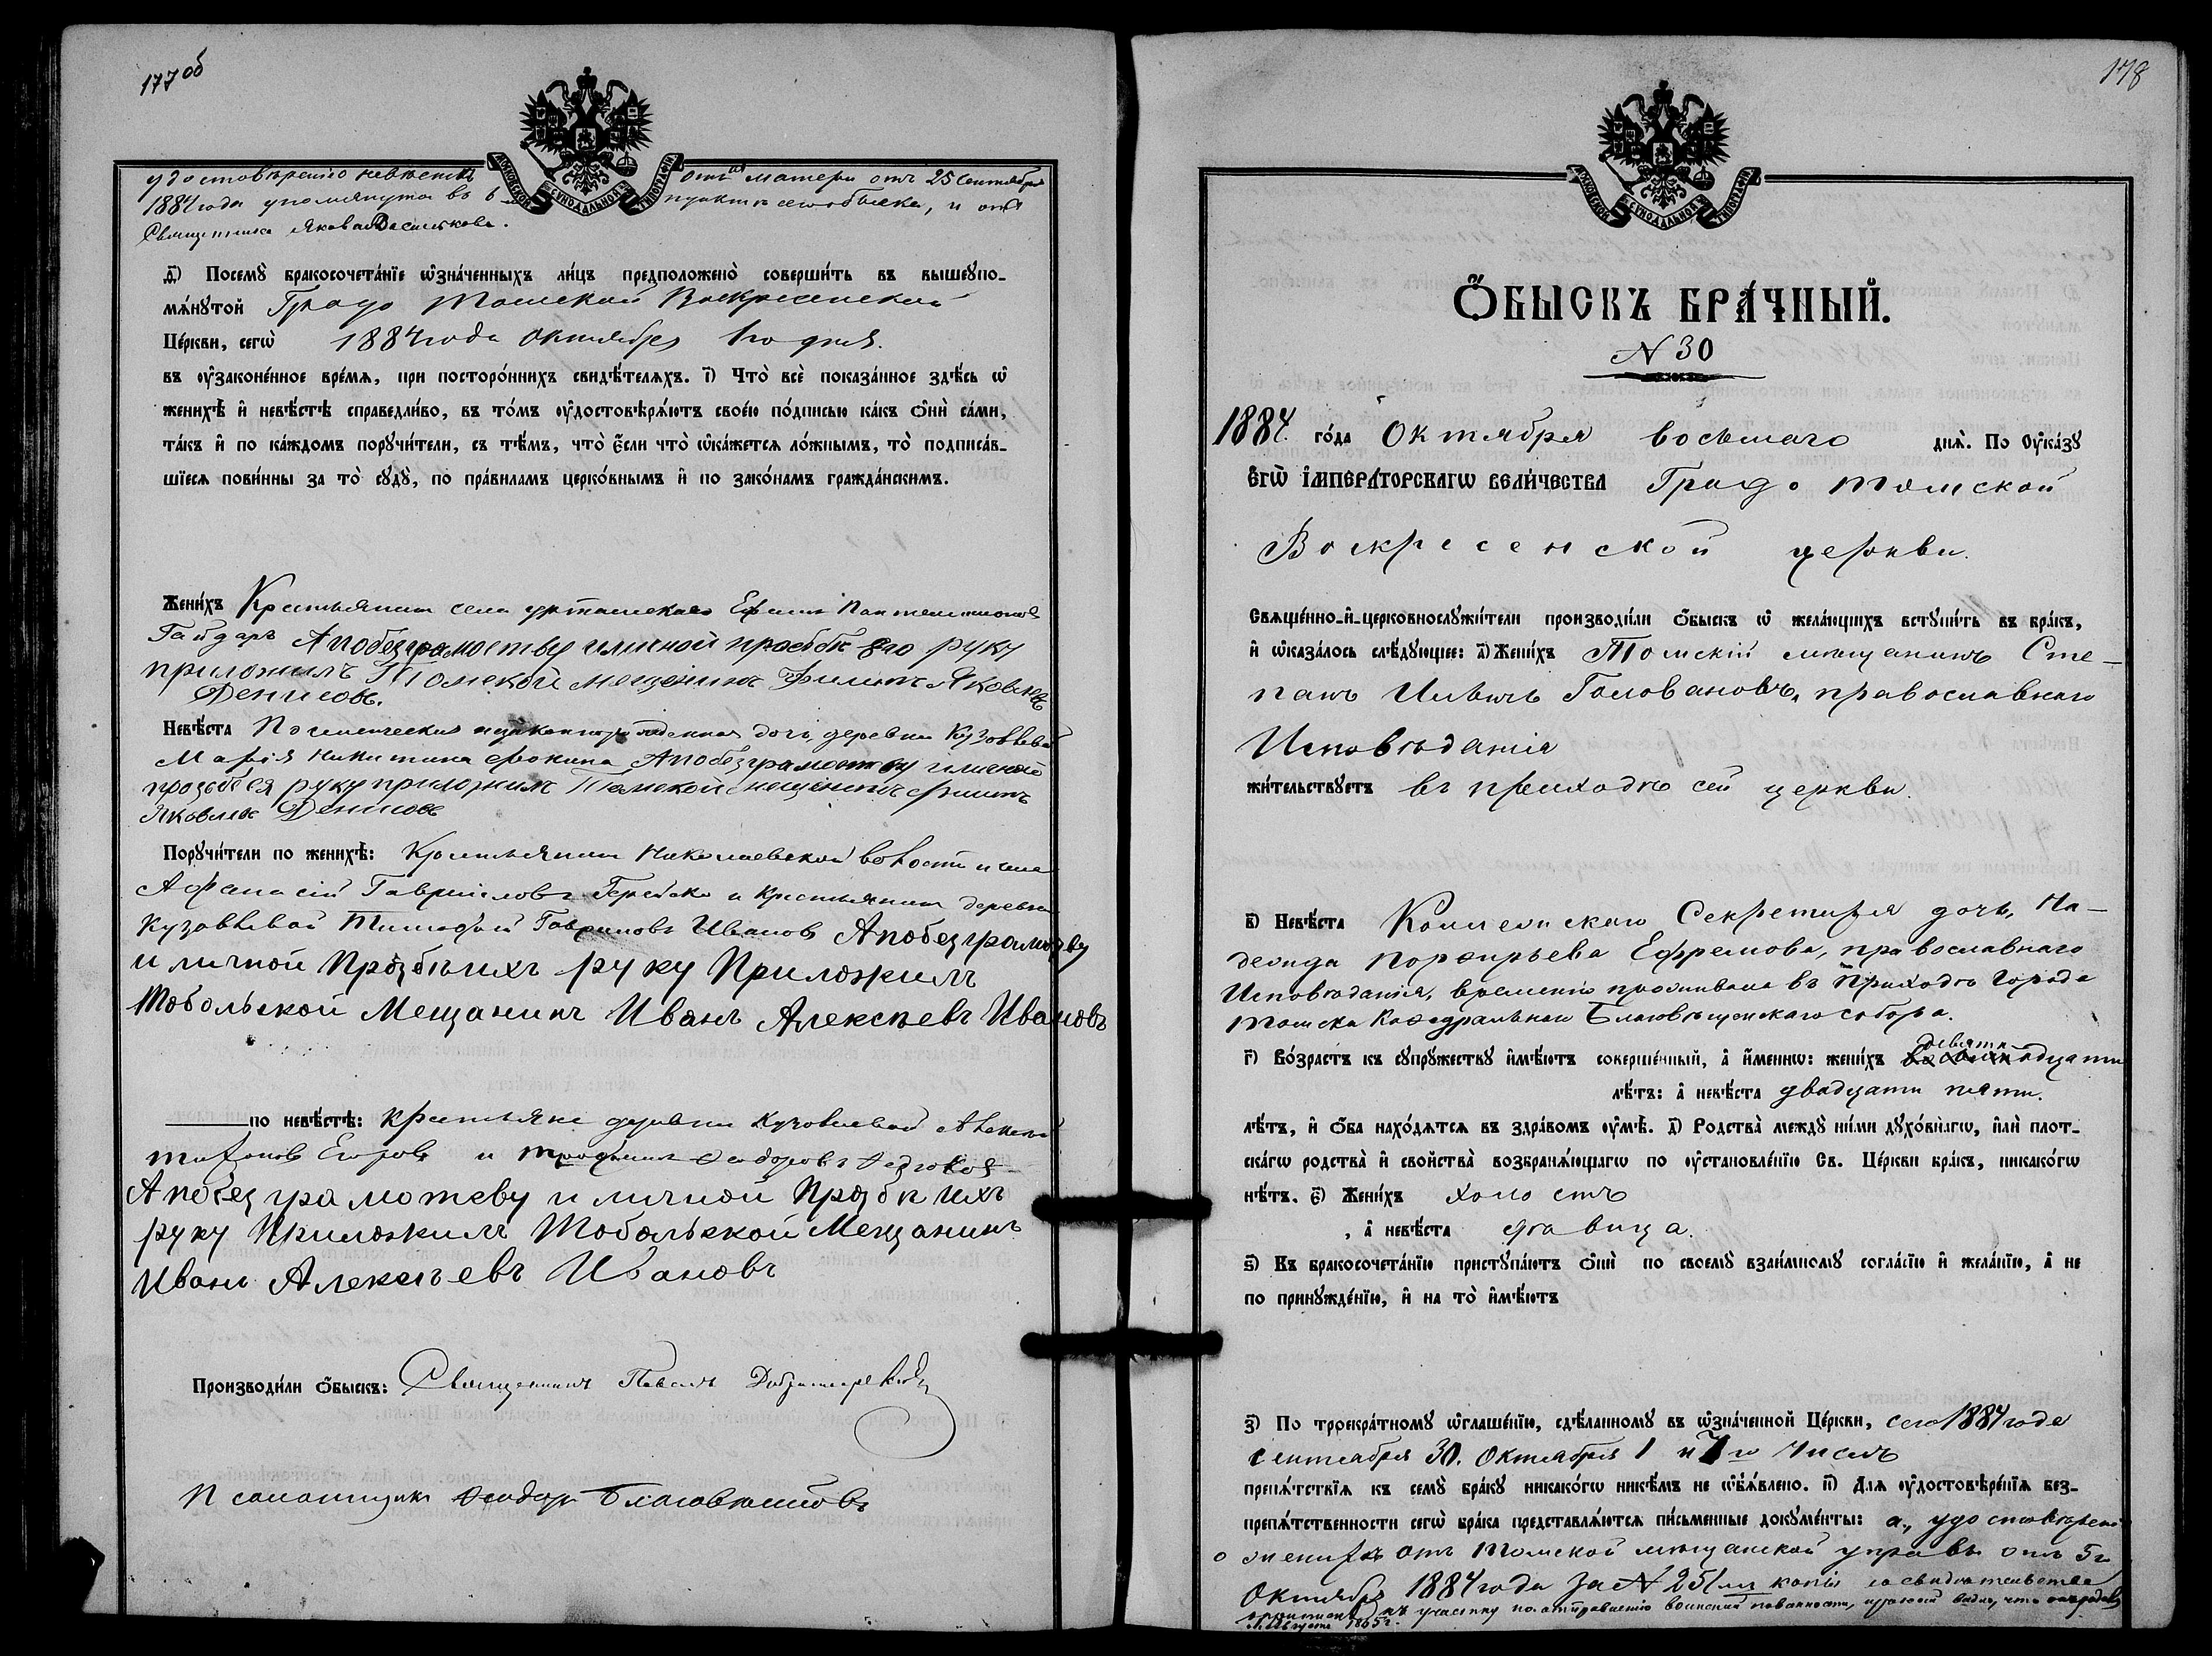 177об
МОСКОВСКОЙ СѴНОДАЛЬНОЙ ТИПОГРАФІИ
удостовѣренiю невѣстѣ отъ ея матери отъ 25 Сентября
1884 года упомянута въ 6 пунктѣ сего обыска, и отъ
Священника Якова Василькова.
д҃і) Посемꙋ̀ бракосочета́нїе ѡ҆зна́ченныхъ ли́цъ предположено̀ соверши́ть въ вышеꙋпо-
мѧ́нꙋтой Градо Томской Воскресенской
Це́ркви, сегѡ̀ 1884 года Октября 1го дня.
въ ᲂу҆законе́нное вре́мѧ, при посторо́ннихъ свидѣ́телѧхъ. і҃) Что̀ всѐ показа́нное здѣ́сь ѡ҆
женихѣ̀ и҆ невѣ́стѣ справедли́во, въ то́мъ ᲂу҆достовѣрѧ́ютъ свое́ю по́дписью ка́къ ѻ҆нѝ са́ми,
та́къ и҆ по ка́ждомъ порꙋчи́тели, съ тѣ́мъ, что̀ є҆́сли что̀ ѡ҆ка́жетсѧ ло́жнымъ, то̀ подписа́в-
шїесѧ пови́нны за то̀ сꙋдꙋ̀, по пра́виламъ церко́внымъ и҆ по зако́намъ гражда́нскимъ.
Жени́хъ Крестьянинъ села Уртамскаго Ефимъ Пантелимоновъ
Гайдаръ А побезграмоству иличной прозбѣ Его руку
приложилъ Томской мещенинъ Филипъ Яковлевъ
Денисовъ.
Невѣ́ста дочь деревни Кузовлевой
Марiя Никитина Фокина Апобезграмотству иличной
прозьбѣ ея руку приложилъ Томской мещенинъ Филипъ
Яковлевъ Денисовъ
Порꙋчи́тели по женихѣ̀: Крестьянинъ Николаевской волости
Афанасiй Гаврииловъ и крестьянинъ деревни
Кузовлевой Тимофей Гавриловъ Ивановъ Апобезграмотству
и личной Прозбѣ ихъ руку Приложилъ
Тобольской Мещанинъ Иванъ Алексѣевъ Ивановъ
по невѣ́стѣ: крестьяне деревни Кузовлевой Алексѣй
Егоровъ и Трофимъ Ѳеодоровъ
Апобезграмотеву и личной Прозбѣ ихъ
руку Приложилъ Тобольской Мещанинъ
Иванъ Алексѣевъ Ивановъ
Производи́ли ѻ҆́быскъ: Священникъ Павелъ
Псаломщикъ Ѳеодоръ Благовѣстовъ
178
МОСКОВСКОЙ СѴНОДАЛЬНОЙ ТИПОГРАФІИ
Ѻ҆́БЫСКЪ БРА́ЧНЫЙ.
N 30
1884. го́да Октября восьмаго днѧ̀. По Оу҆ка́зꙋ
Є҆гѡ̀ И҆МПЕРА́ТОРСКАГѠ ВЕЛИ́ЧЕСТВА Градо Томской
Воскресенской церкви.
Свѧще́нно-и҆-церковнослꙋжи́тели производи́ли ѻ҆́быскъ ѡ҆ жела́ющихъ встꙋпи́ть въ бра́къ,
и҆ ѡ҆каза́лось слѣ́дꙋющее: а҃) Жени́хъ Томскiй мѣщанинъ Сте-
панъ Ильинъ Головановъ, православнаго
Исповѣданiя
жи́тельствꙋетъ въ приходѣ сей церкви.
в҃) Невѣ́ста Коллежскаго Секретаря дочь, На-
дежда Порфирьева Ефремова, православнаго
Исповѣданiя, временно проживала въ Приходѣ города
Томска Каѳедральнаго Благовѣщенскаго собора.
г҃) Во́зрастъ къ сꙋпрꙋ́жествꙋ и҆мѣ́ютъ соверше́нный, а҆ и҆́менно: жени́хъ девятнадцати
лѣ́тъ: а҆ невѣ́ста двадцати пяти.
лѣ́тъ, и҆ ѻ҆́ба нахо́дѧтсѧ въ здра́вомъ ᲂу҆мѣ̀. д҃) Родства̀ междꙋ̀ ни́ми дꙋхо́внагѡ, и҆лѝ плот-
ска́гѡ родства̀ и҆ сво́йства возбранѧ́ющагѡ по ᲂу҆становле́нїю Св. Це́ркви бра́къ, никако́гѡ
нѣ́тъ. є҃) Жени́хъ холостъ
, а҆ невѣ́ста дѣвица.
ѕ҃) Къ бракосочета́нїю пристꙋпа́ютъ ѻ҆нѝ по своемꙋ̀ взаи́мномꙋ согла́сїю и҆ жела́нїю, а҆ не
по принꙋжде́нїю, и҆ на то̀ и҆мѣ́ютъ
з҃) По троекра́тномꙋ ѡ҆глаше́нїю, сдѣ́ланномꙋ въ ѡ҆зна́ченной Це́ркви, сего 1884 года
Сентября 30. Октября 1 и 7го Чиселъ
препѧ́тствїѧ къ семꙋ̀ бра́кꙋ никако́гѡ никѣ́мъ не ѡ҆б̾ѧ́влено. и҃) Длѧ ᲂу҆достовѣре́нїѧ без-
препѧ́тственности сегѡ̀ бра́ка представлѧ́ютсѧ пи́сьменные докꙋме́нты: а., удостовѣренiе
о женихѣ отъ Томской мѣщанской управы отъ 5го
Октября 1884 года за N 251 копiя со свидѣтельства
о припискѣ къ участку по отправленiю воинской повинности, изъ коей видно, что онъ родился
Августа 1865 г.